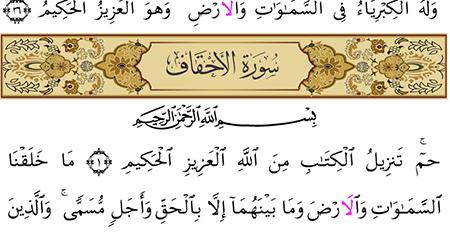 وَلَهُ الْكِبْرِيَاءُ فِى السَّمٰوَاتِ وَالْاَرْضِ وَهُوَ الْعَزِيزُ الْحَكِيمُ ﴿٣٦﴾
سُورَةُ الْأَحْقَافِ
بِسْمِ اللّٰهِ الرَّحْمٰنِ الرَّحِيمِ
حٰمۤ ۚ تَنْزِيلُ الْكِتَابِ مِنَ اللّٰهِ الْعَزِيزِ الْحَكِيمِ ﴿١﴾ مَا خَلَقْنَا
السَّمٰوَاتِ وَالْاَرْضَ وَمَا بَيْنَهُمَٓا إِلَّا بِالْحَقِّ وَأَجَلٍ مُسَمًّى ۚ وَالَّذِينَ